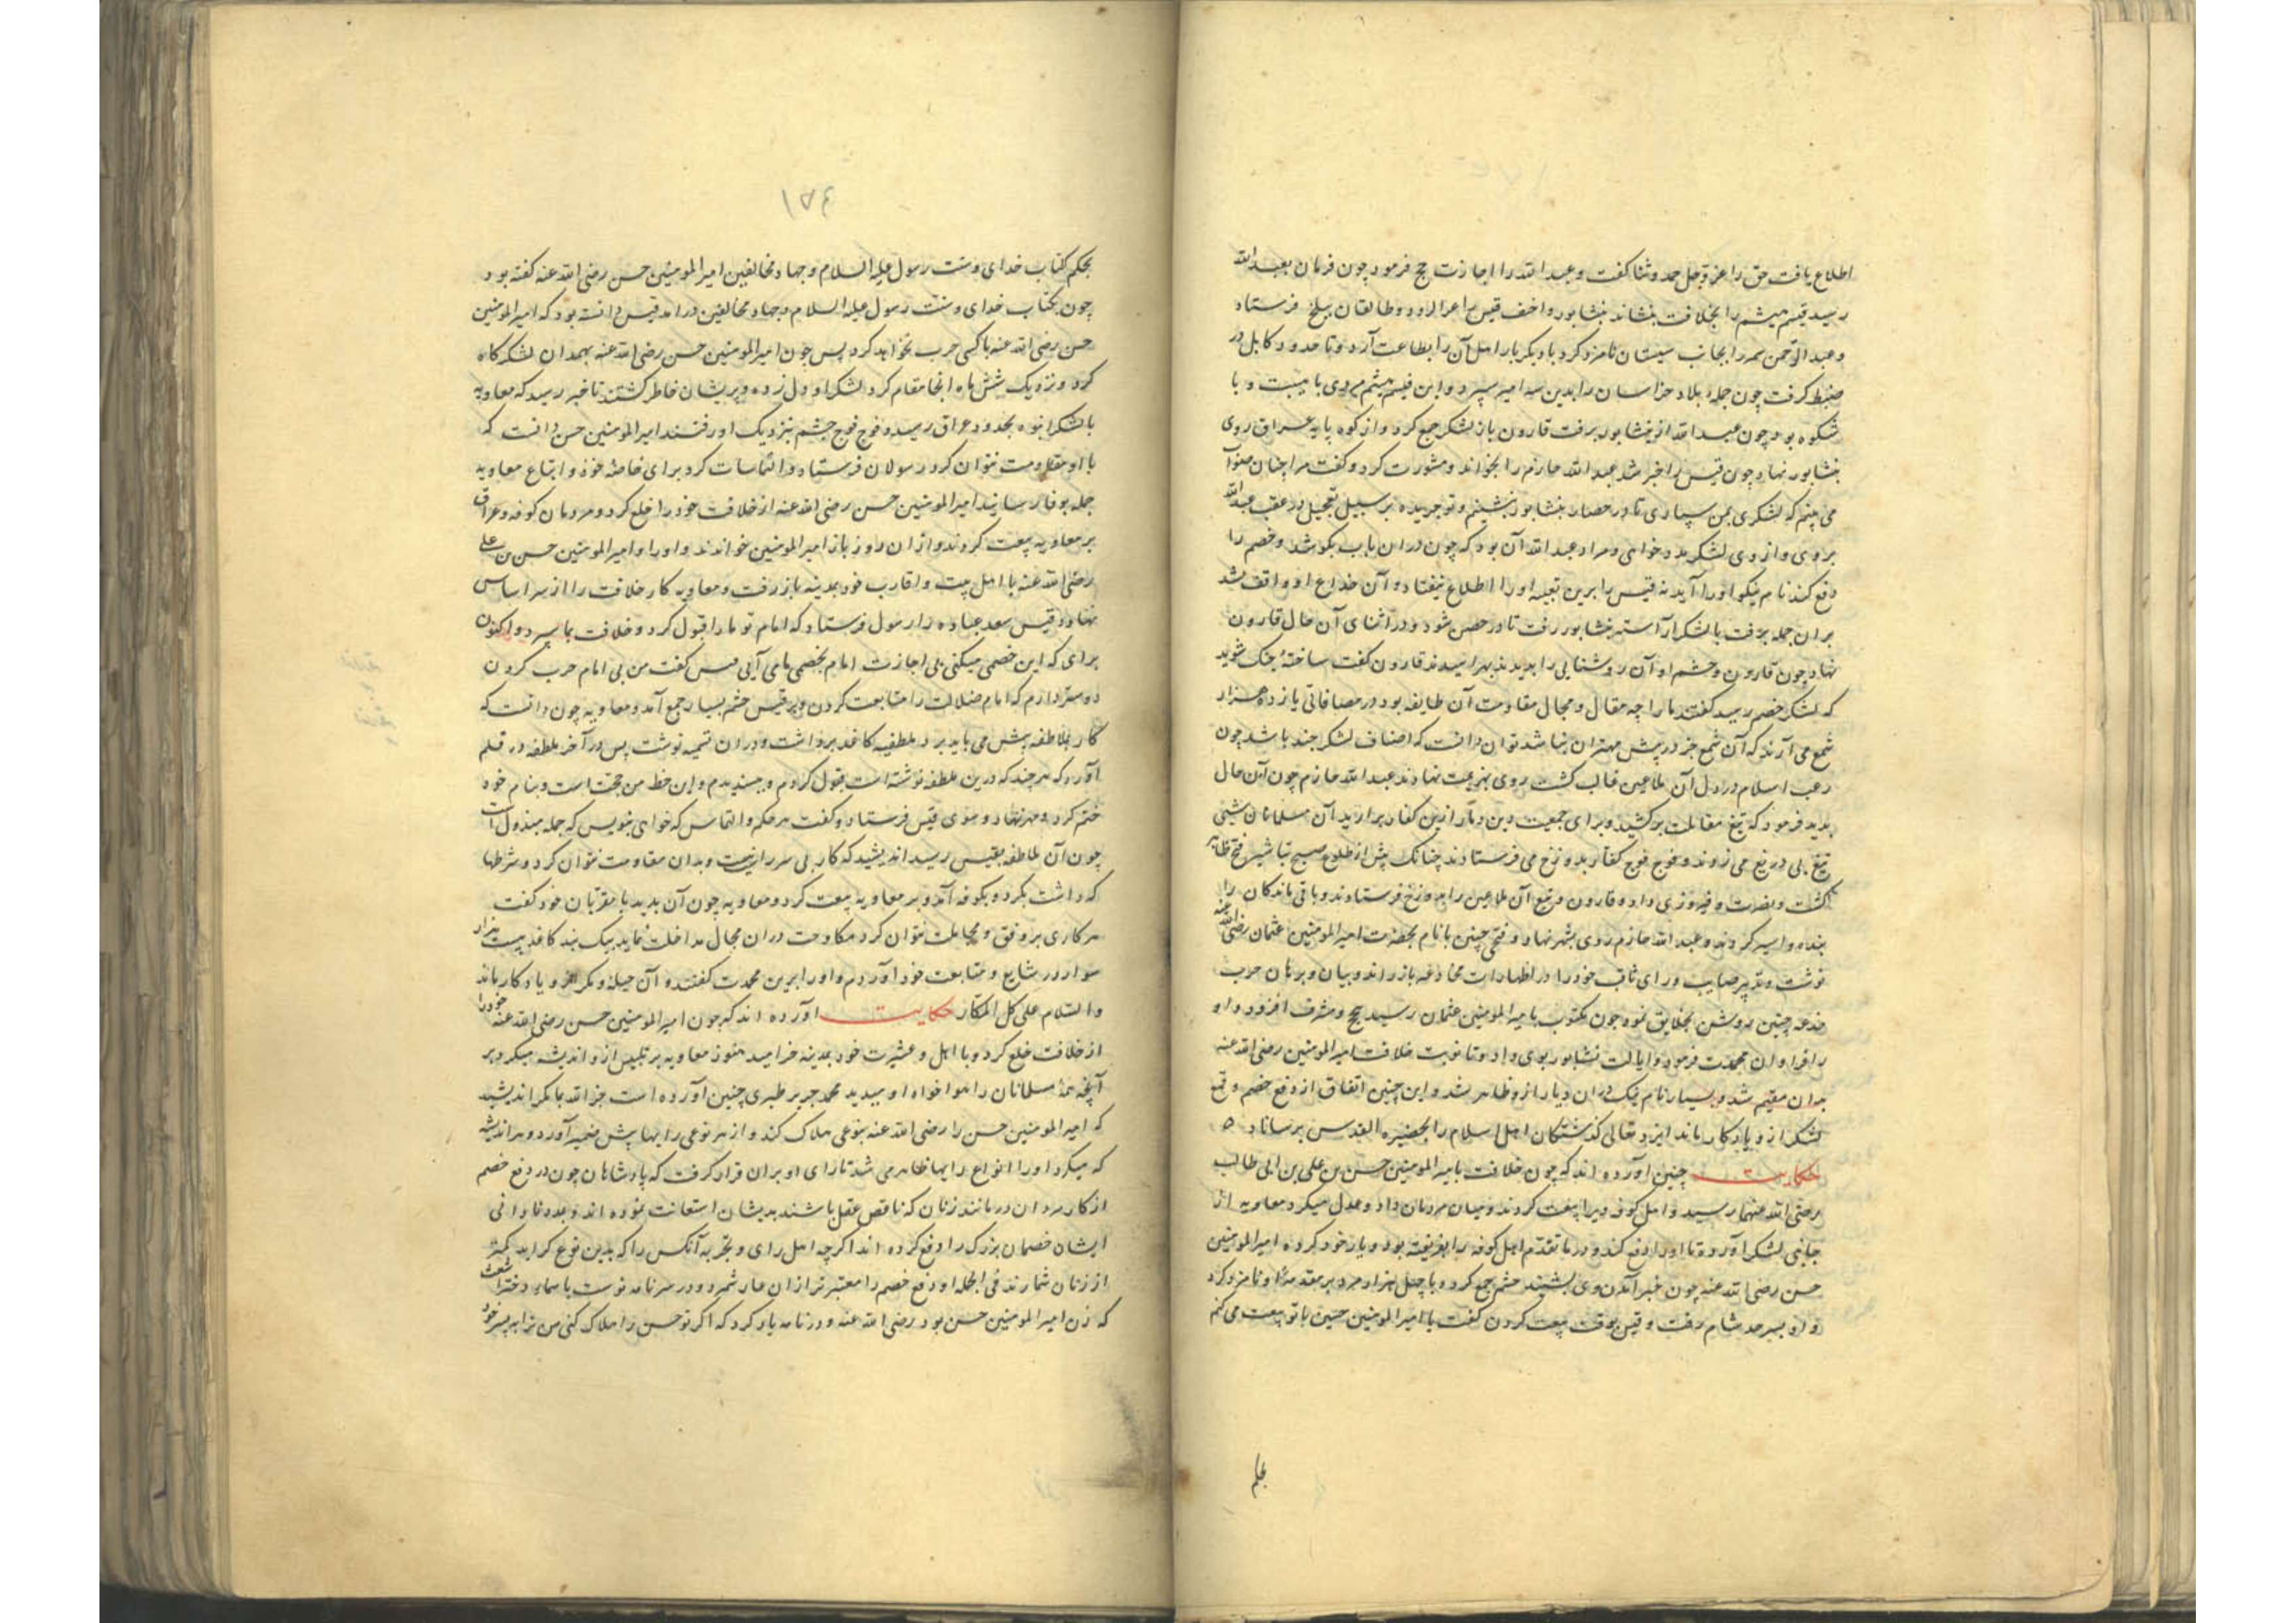 اطلاع یافت حق را عز و جل حمد و ثنا گفت و عبدالله را اجازت حج فرمود چون فرمان بعبدالله
رسید قیس میثم را بخلافت بنشاند بنشابور و احنف قیس را و طالقان ببلخ فرستاد
و عبدالرحمن سمره را بجانب سیستان نامزد کرد بار دیگر اهل آن را بطاعت آرد و تا حدود کابل در
ضبط گرفت چون جمله بلاد خراسان را بدین سه امیر سپرد و این قیس میثم مردی با هیبت و با
شکوه بود چون عبدالله از نشابور برفت قارون باز لشکر جمع کرد و از کوه پایه روی
بنشابور نهاد چون قیس را خبر شد عبدالله خازم را بخواند و مشورت کرد و گفت مرا چنان صواب
می بینم که لشکری بمن سپاری تا در حصار نشابور بنشینم و تو جریده بر سبیل تعجیل در عقب عبدالله
بروی و از وی لشکر مدد خواهی و مراد عبدالله آن بود که چون در ان باب بکوشد و خصم را
دفع کند نام نیکو او را آید نه قیس را برین تعبیه او را اطلاع نیفتاد و آن خداع او واقف نشد
بران جمله برفت با لشکر آراسته نشابور رفت تا در حصن شود و در اثنای آن حال قارون
نهاد چون قارون و حشم او آن روشنایی را بدیدند بهراسیدند قارون گفت ساخته جنک شوید
که لشکر خصم رسید گفتند ما را چه مقال و مجال مقاومت آن طایفه بود در مصافاتی یازده هزار
شمع می آرند که آن شمع جز در پیش مهتران نباشد توان دانست که اضعاف لشکر چند باشد چون
رعب اسلام در دل آن ملاعین غالب گشت روی بهزیمت نهادند عبدالله خازم چون آن حال
بدید فرمود که تیغ مقاتلت برکشید و برای جمعیت دین دمار ازین کفار برآرید آن مسلمانان
تیغ بی دریغ می زدند و فوج فوج کفار بدوزخ می فرستادند چنانک پیش از طلوع صبح تباشیر فتح ظاهر
گشت و نصرت و فیروزی داد و قارون و تبع آن ملاعین را بدوزخ فرستادند و باقی ماندگان را
بنده و اسیر کردند و عبدالله خازم روی بشهر نهاد و فتحی چنین بانام بحضرت امیرالمومنین عثمان رضی الله عنه
نوشت و تدبیر صایب و رای ثاقب خود را در اظهار ات مخادعه باز راند و بیان و برهان حرب
خدعه چنین روشن بخلایق نمود چون مکتوب بامیرالمومنین عثمان رسید حج و مشرف افزود و او
را فراوان محمدت فرمود و ایالت نشابور بوی داد و تا نوبت خلافت امیرالمومنین رضی الله عنه
بدان مقیم شد و بسیار نام نیک دران دیار ازو ظاهر شد و این چنین اتفاق از دفع خصم و قمع
لشکر ازو یادگار ماند ایزد تعالی گذشتگان اهل اسلام را بحضیره القدس برساناد ٥
حکایت چنین آورده اند که چون خلافت بامیرالمومنین حسن بن علی بن ابی طالب
رضی الله عنهما رسید و اهل کوفه ویرا بیعت کردند و میان مردمان داد و عدل میکرد معاویه از
جانبی لشکر آورد تا او را دفع کند و در ما تقدم اهل کوفه را بفریفته بود و یار خود کرده امیرالمومنین
حسن رضی الله عنه چون خبر آمدن وی بشنید حشم جمع کرده با چهل هزار مرد بر مقدمه او نامزد کرد
و او بسرحد شام رفت و قیس بوقت بیعت کردن گفت یا امیرالمومنین حسین با تو بیعت می کنم
بحکم
١٥٤
بحکم کتاب خدای و سنت رسول علیه السلام و جهاد مخالفین امیرالمومنین حسن رضی الله عنه گفته بود
چون بکتاب خدای و سنت رسول علیه السلام و جهاد مخالفین در امد قیس دانسته بود که امیرالمومنین
حسن رضی الله عنه با کسی حرب نخواهد کرد پس چون امیرالمومنین حسن رضی الله عنه بهمدان لشکرگاه
کرد و نزدیک شش ماه انجا مقام کرد لشکر او دل زده و پریشان خاطر گشتند تا خبر رسید که معاویه
با لشکر انبوه بحدود عراق رسید و فوج فوج حشم بنزدیک او رفتند امیرالمومنین حسن دانست که
با او مقاومت نتوان کرد رسولان فرستاد و التماسات کرد برای خاصه خود و اتباع معاویه
جمله بوفا رسانید امیرالمومنین حسن رضی الله عنه از خلافت خود را خلع کرد و مردمان کوفه و عراق
بر معاویه بیعت کردند و از ان روز باز امیرالمومنین خواندند و او را و امیرالمومنین حسن بن علی
رضی الله عنه با اهل بیت و اقارب خود بمدینه باز رفت و معاویه کار خلافت را از سر اساس
نهاد و قیس سعد عباده را رسول فرستاد که امام تو ما را قبول کرد و خلافت بما سپرد و اکنون
برای که این خصمی میکنی بی اجازت امام بخصمی ما می آیی قیس گفت من بی امام حرب کردن
دوستر دارم که امام ضلالت را متابعت کردن و بر قیس حشم بسیار جمع آمد و معاویه چون دانست که
کار بملاطفه پیش می باید برد ملطفه کاغذ برداشت و دران تسمیه نوشت پس در آخر ملطفه در قلم
آورد که هر چند که درین ملطفه نوشته است قبول کردم و پسندیدم و این خط من حجت است و بنام خود
ختم کرد و مهر نهاد و سوی قیس فرستاد و گفت هر حکم و التماس که خواهی بنویس که جمله مبذول است
چون آن ملاطفه بقیس رسید اندیشید که کار بی سر راز نیست و بدان مقاومت نتوان کرد و شرطها
که داشت بکرد و بکوفه آمد و بر معاویه بیعت کرد و معاویه چون آن بدید با مقربان خود گفت
هر کاری بر وفق و مجاملت نتوان کرد مکاوحت دران مجال مداخلت نماید بیک بند کاغذ بیست هزار
سوار در مشایع و متابعت خود آوردم و او را برین محمدت گفتند و آن حیله و مکر ازو یادکار ماند
والسلام علی کل المکار حکایت آورده اند که چون امیرالمومنین حسن رضی الله عنه خود را
از خلافت خلع کرد و با اهل و عشیرت خود بمدینه خرامید هنوز معاویه بر تلبیس ازو اندیشه میکرد بر
آنچه همه مسلمانان را هواخواه او میدید محمد جریر طبری چنین آورده است جزاه الله بما مکر اندیشید
که امیرالمومنین حسن را رضی الله عنه بنوعی هلاک کند و از هر نوعی رایها پیش ضمیر آورد و هر اندیشه
که میکرد او را انواع رایها ظاهر می شد تا رای او بران قرار گرفت که پادشاهان چون در دفع خصم
از کار مردان درمانند زنان که ناقص عقل باشند بدیشان استعانت نموده اند و بعده نادانی
ایشان خصمان بزرک را دفع کرده اند اگرچه اهل رای و تجربه آنکس را که بدین نوع گراید کمتر
از زنان شمارند فی الجمله او دفع خصم را معتبرتر از ان عار شمرد و در سر نامه نوشت باسماء دختر اشعث
که زن امیرالمومنین حسن بود رضی الله عنه و در نامه یاد کرد که اگر تو حسن را هلاک کنی من ترا به پسر خود